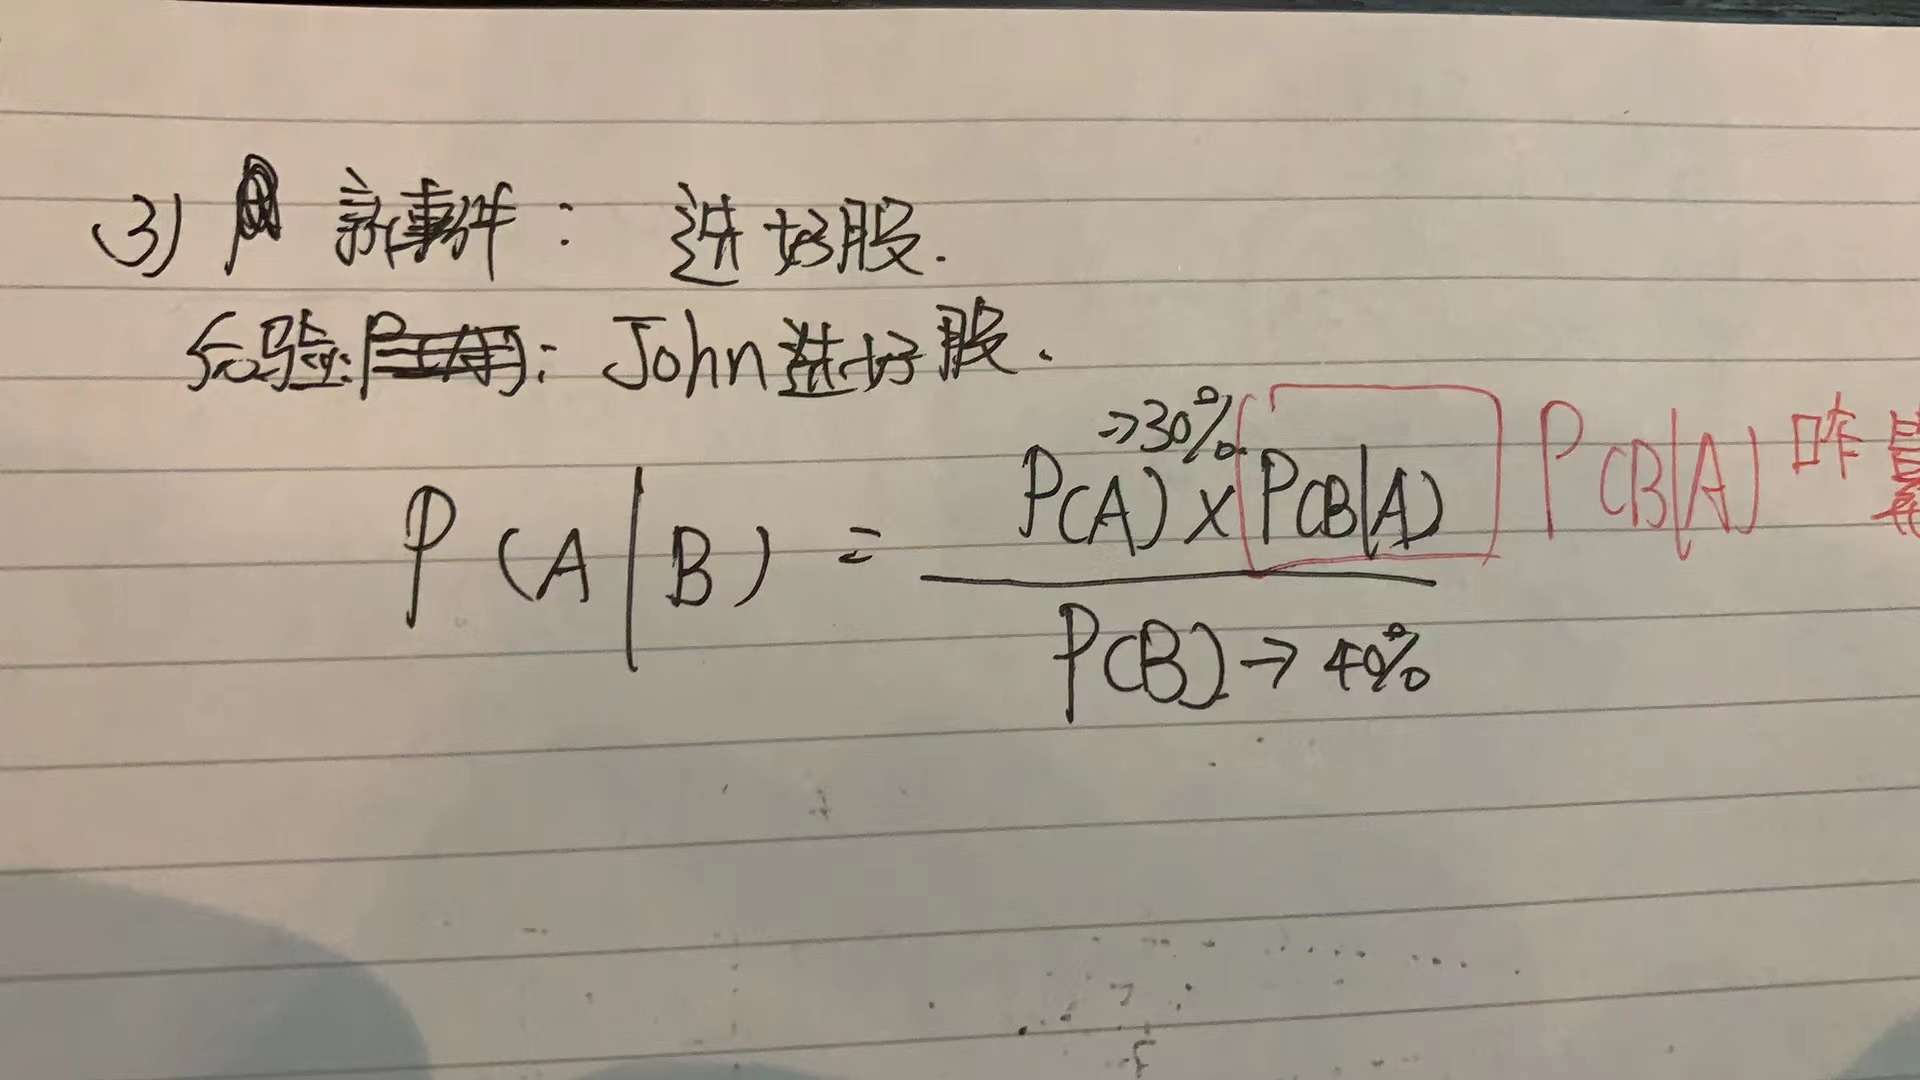 3) 新事件: 选好股.
先验: John选好股.
→30%
P(A|B) = P(A) × P(B|A) P(B|A) 咋算
P(B) → 40%